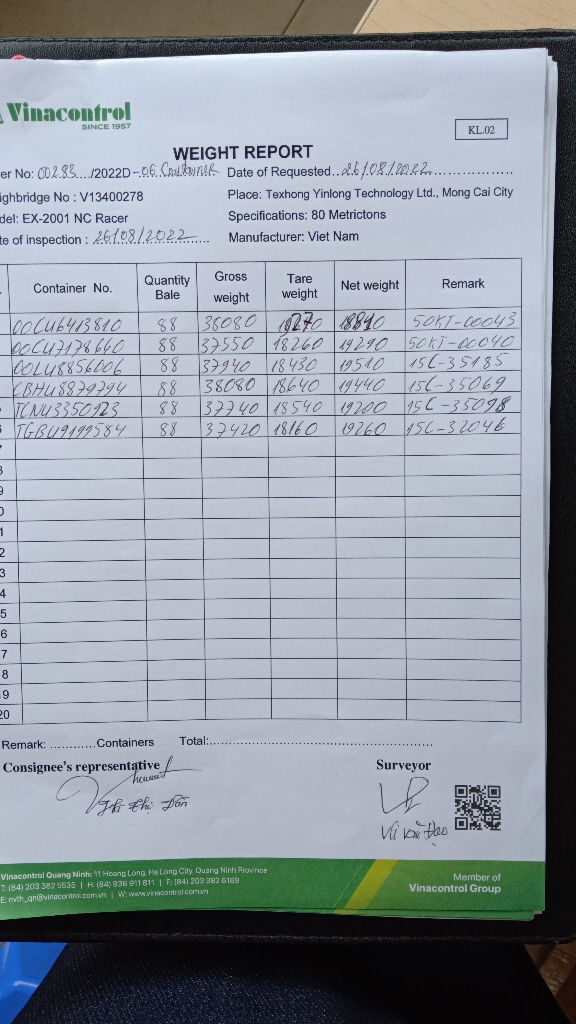 Vinacontrol
SINCE 1957
KL.02
WEIGHT REPORT
er No: 00283..../2022D-06 Container Date of Requested..26/08/2022
ighbridge No : V13400278 Place: Texhong Yinlong Technology Ltd., Mong Cai City
del: EX-2001 NC Racer Specifications: 80 Metrictons
te of inspection : 26/08/2022 Manufacturer: Viet Nam
Container No. Quantity Bale Gross weight Tare weight Net weight Remark
OOCU6413810 88 38080 50KT-00043
OOCU7178660 88 37550 18260 19290 50KT-00040
OOLU8856006 88 37940 18430 19510 15C-35185
CBHU8879794 88 38080 18640 19440 15C-35069
TCNU3350923 88 37740 18540 19200 15C-35098
TGBU9199584 88 37420 18160 19260 15C-32046
8
9
0
1
2
3
4
5
6
7
8
19
20
Remark: ............Containers Total:
Consignee's representative Surveyor
Vinacontrol Quang Ninh: 11 Hoang Long, Ha Long City, Quang Ninh Province
T: (84) 203 382 5535 | H: (84) 936 911 811 | F: (84) 203 382 6169
E: nvth_qn@vinacontrol.com.vn | W: www.vinacontrol.com.vn
Member of
Vinacontrol Group